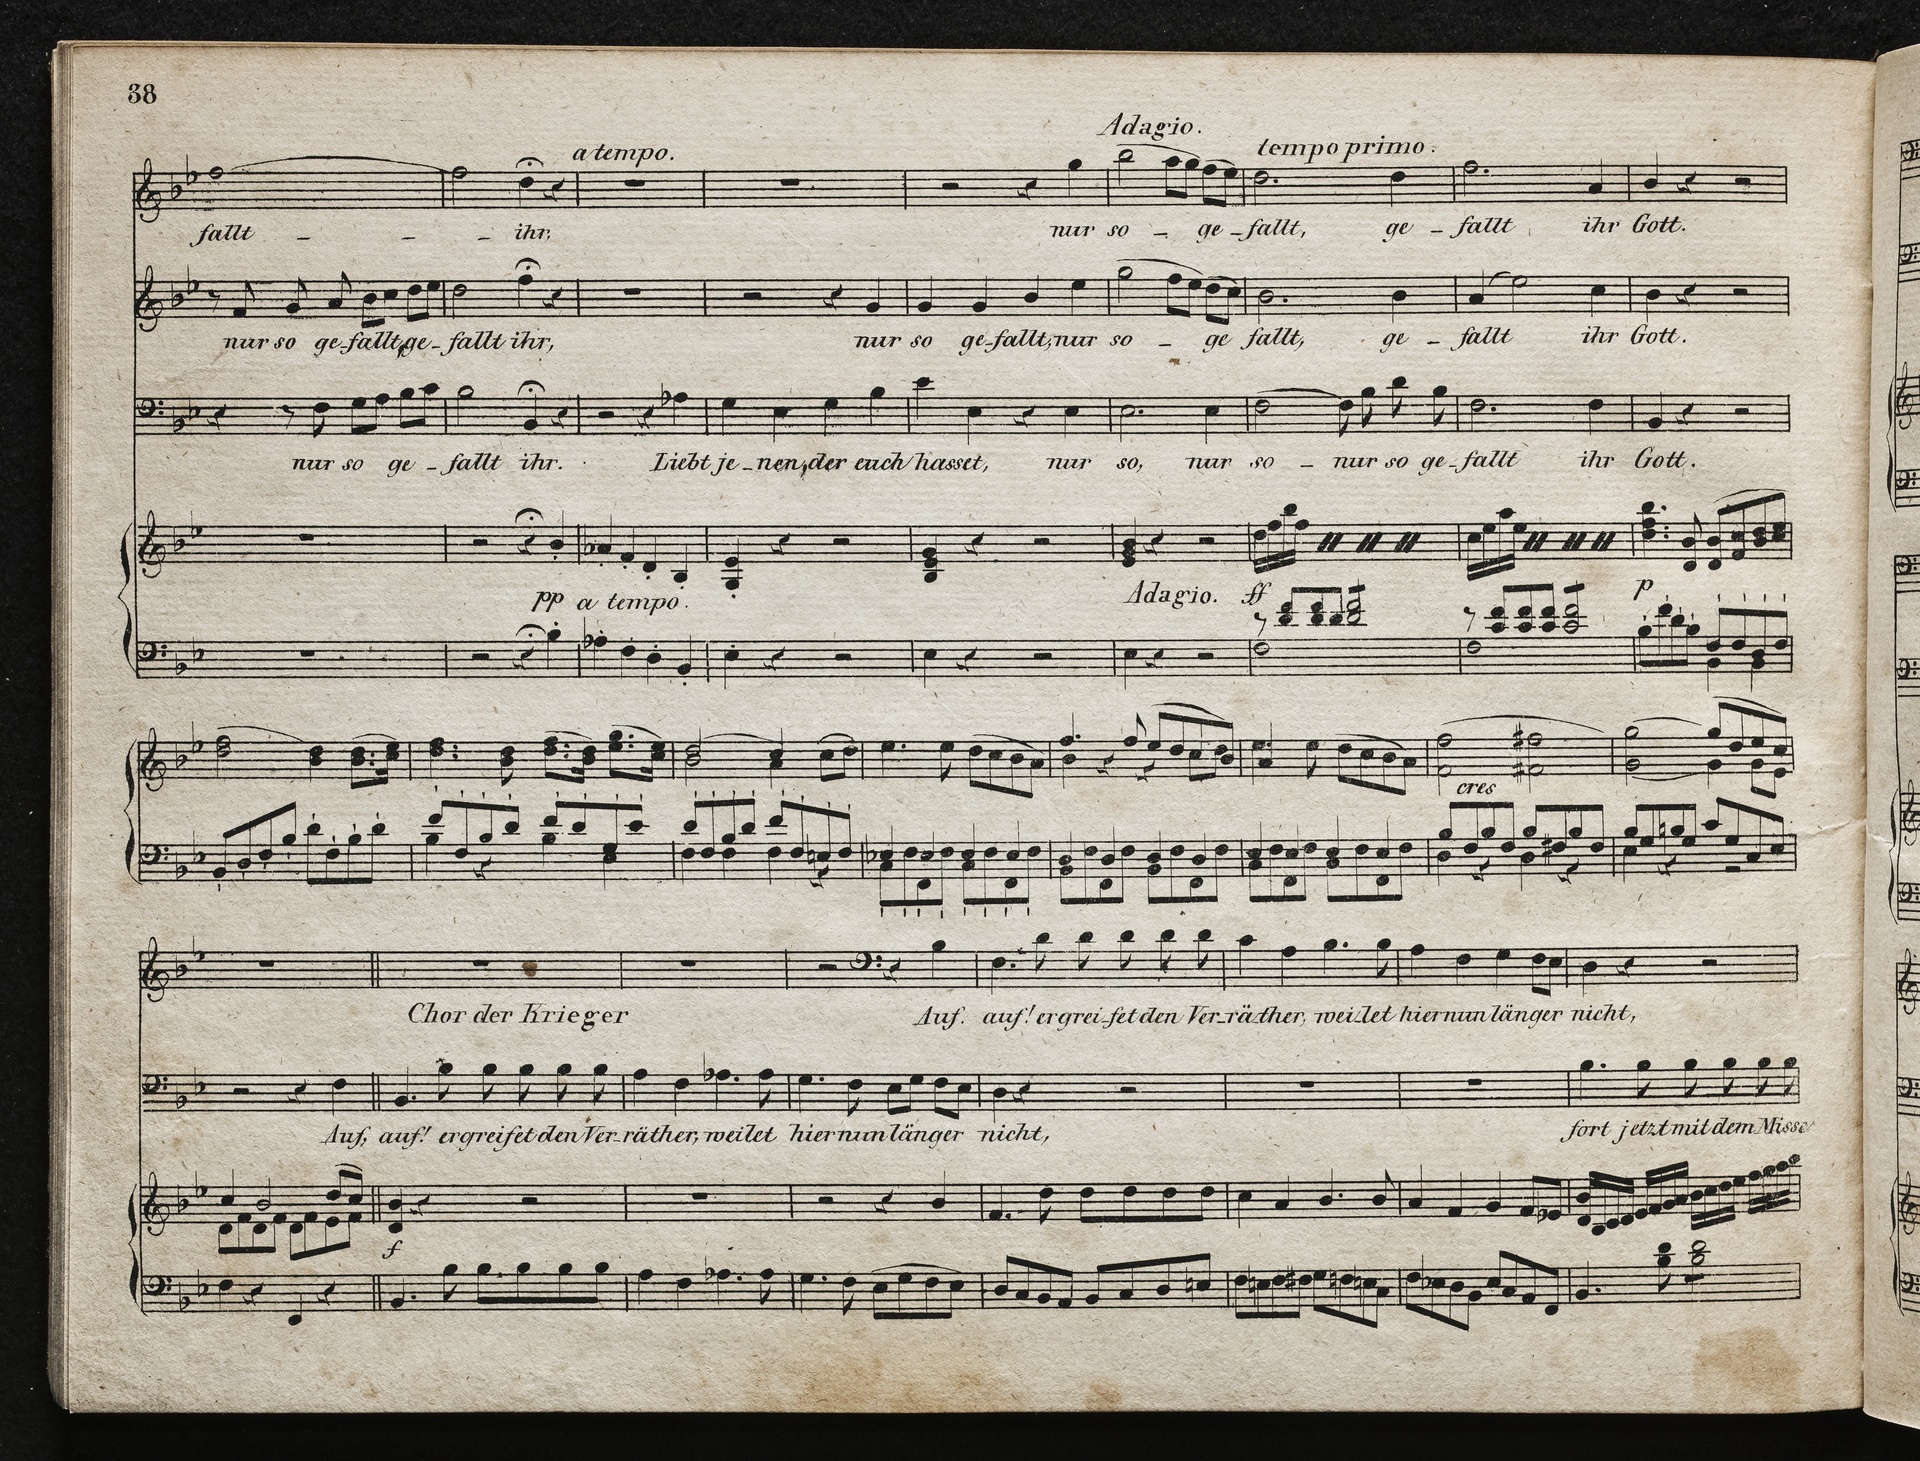 38
Adagio.
a tempo. tempo primo.
fallt _ _ _ ihr, nur so _ ge_fallt, ge _ fallt ihr Gott.
nur so ge_fallt, ge_fallt ihr, nur so ge_fallt, nur so _ ge fallt, ge _ fallt ihr Gott.
nur so ge _ fallt ihr. Liebt je_nen, der euch hasset, nur so, nur so _ nur so ge_fallt ihr Gott.
pp a tempo. Adagio. ff p
cres
Chor der Krieger Auf. auf! ergrei_fet den Ver_rä_ther, wei_let hier nun länger nicht,
Auf, auf! ergreifet den Ver_räther, weilet hier nun länger nicht, fort jetzt mit dem Misse
f